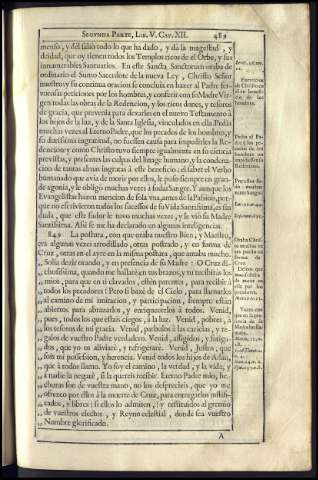 SEGVNDA PARTE, LIB. V. CAP. XII. 489
menso, y del salio todo lo que ha dado, y dà la magestad, y
deidad, que oy tienen todos los Templos ricos de el Orbe, y sus
innumerables Santuarios. En este Sancta Sanctorum oraba de
ordinario el Sumo Sacerdote de la nueva Ley, Christo Señor
nuestro y su continua oracion se concluia en hazer al Padre fer-
vorosas peticiones por los hombres, y conferir con su Madre Vir-
gen todas las obras de la Redencion, y los ricos dones, y tesoros
de gracia, que prevenia para dexarles en el nuevo Testamento à
los hijos de la luz, y de la Santa Iglesia, vinculados en ella. Pedia
muchas vezes al Eterno Padre, que los pecados de los hombres, y
su durissima ingratitud, no fuessen causa para impedirles la Re-
dencion: y como Christo tuvo siempre igualmente en su ciencia
previstas, y presentes las culpas del linage humano, y la condena-
cion de tantas almas ingratas à este beneficio; el saber el Verbo
humanado que avia de morir por ellos, le puso siempre en gran-
de agonia, y le obligò muchas vezes à sudar Sangre. Y aunque los
Evangelistas hazen mencion de sola vna, antes de la Passion, por-
que no escrivieron todos los sucessos de su Vida Santissima, es sin
duda, que este sudor le tuvo muchas vezes, y le viò su Madre
Santissima. Assi se me ha declarado en algunas inteligencias.
849 La postura, con que oraba nuestro Bien, y Maestro,
era algunas vezes arrodillado, otras postrado, y en forma de
Cruz, otras en el ayre en la misma postura, que amaba mucho.
„ Solia dezir orando, y en presencia de su Madre: O Cruz di-
„ chosissima, quando me hallarè en tus brazos, y tu recibiràs los
„ mios, para que en ti clavados, estèn patentes, para recibir à
„ todos los pecadores? Pero si baxè de el Cielo, para llamarlos
„ al camino de mi imitacion, y participacion, siempre estàn
„ abiertos para abrazarlos, y enriquezerlos à todos. Venid,
„ pues, todos los que estais ciegos, à la luz. Venid, pobres, à
„ los tesoros de mi gracia. Venid, parbulos à las caricias, y re-
„ galos de vuestro Padre verdadero. Venid, afligidos, y fatiga-
„ dos, que yo os aliviarè, y refrigerarè. Venid, Justos, que
„ sois mi possession, y herencia. Venid todos los hijos de Adàn,
„ que à todos llamo. Yo soy el camino, la verdad, y la vida; y
„ à nadie la negarè, si la quereis recibir. Eterno Padre mio, he-
„ churas son de vuestra mano, no los desprecieis, que yo me
„ ofrezco por ellos à la muerte de Cruz, para entregarlos justifi-
„ cados, y libres; si ellos lo admiten, y restituidos al gremio
„ de vuestros electos, y Reyno celestial, donde sea vuestro
„ Nombre glorificado.
A